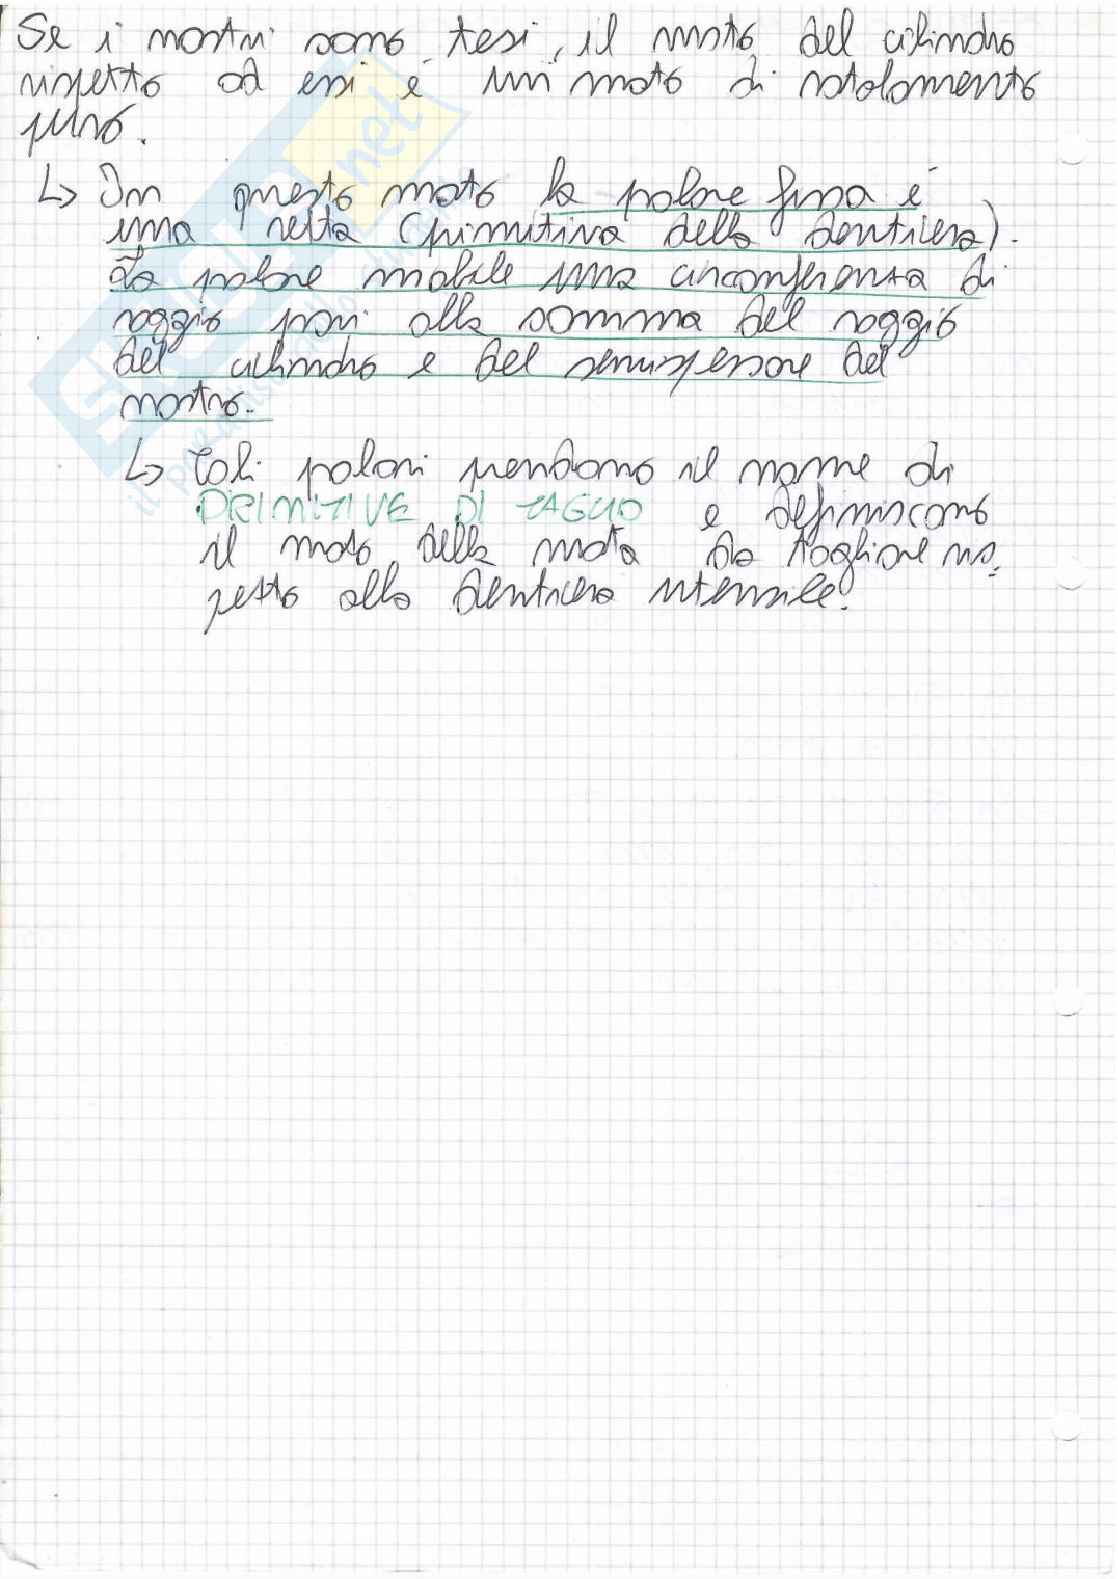 Se i nastri sono tesi, il moto del cilindro
rispetto ad essi è un moto di rotolamento
puro.
↳ In questo moto la polare fissa è
una retta (primitiva della dentiera).
La polare mobile una circonferenza di
raggio pari alla somma del raggio
del cilindro e del semispessore del
nastro.
↳ Tali polari prendono il nome di
PRIMITIVE DI TAGLIO e definiscono
il moto della ruota da tagliare ris-
petto alla dentiera utensile.
SKUOLA.net